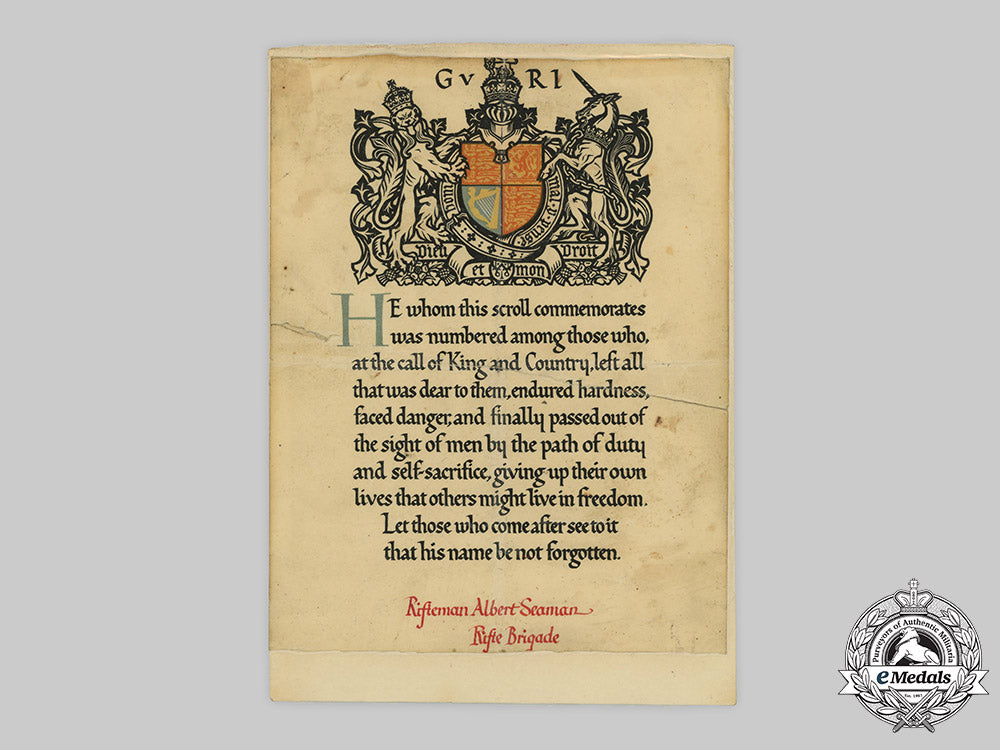 GV RI
honi
mal·y·pense
Dieu et mon Droit
HE whom this scroll commemorates
was numbered among those who,
at the call of King and Country, left all
that was dear to them, endured hardness,
faced danger, and finally passed out of
the sight of men by the path of duty
and self-sacrifice, giving up their own
lives that others might live in freedom.
Let those who come after see to it
that his name be not forgotten.
Rifleman Albert Seaman
Rifle Brigade
Purveyors of Authentic Militaria
eMedals